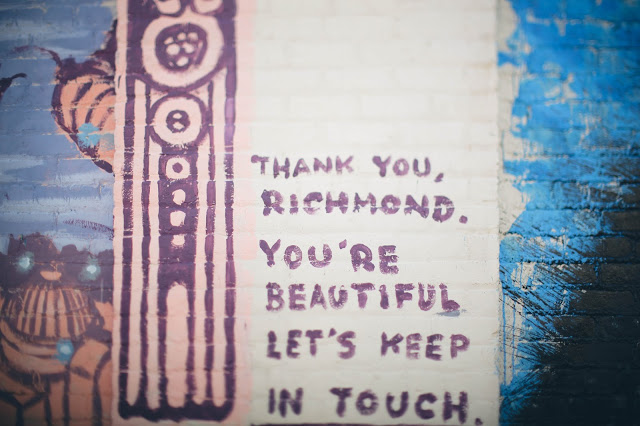 THANK YOU,
RICHMOND.
YOU'RE
BEAUTIFUL
LET'S KEEP
IN TOUCH.